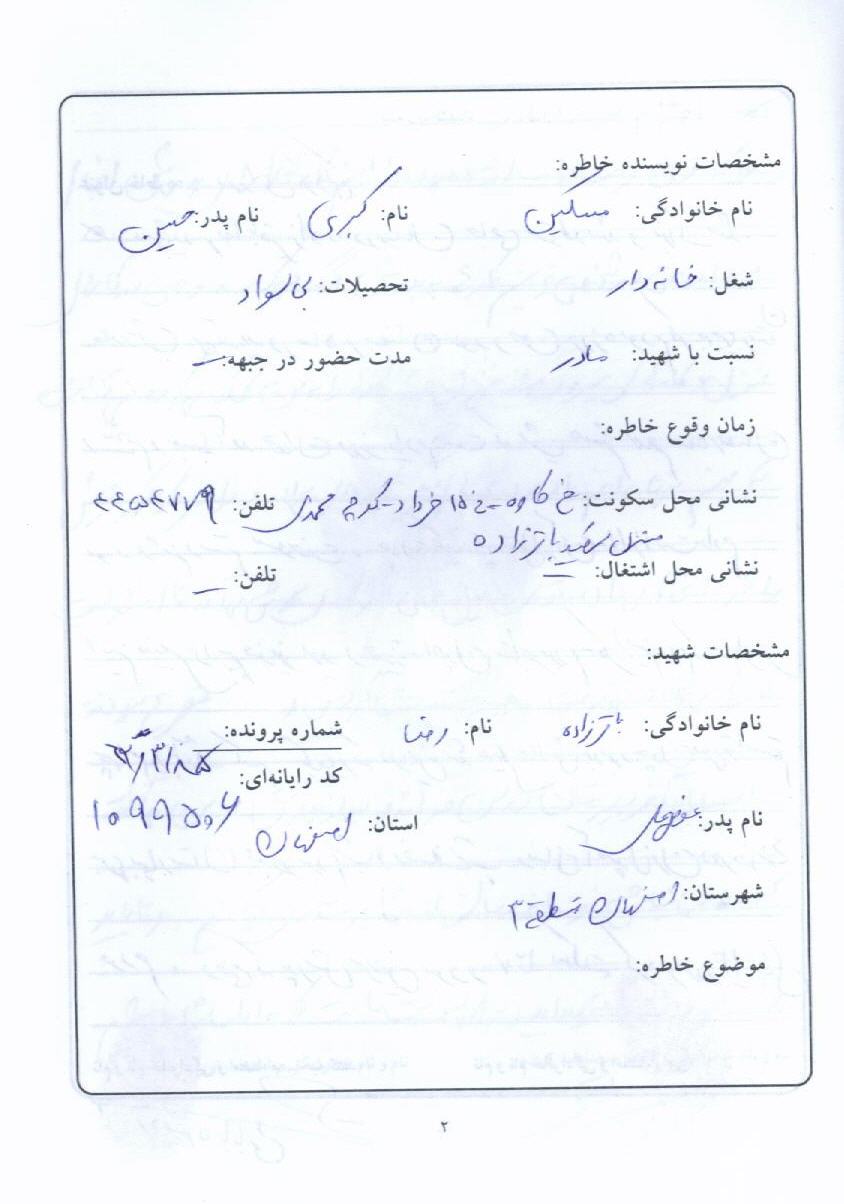 مشخصات نویسنده خاطره:
نام خانوادگی: مسکین نام: کبری نام پدر: حسین
شغل: خانه دار تحصیلات: بی سواد
نسبت با شهید: مادر مدت حضور در جبهه: —
زمان وقوع خاطره:
نشانی محل سکونت: خ کاوه - خ ۱۵ خرداد - کوچه محمدی تلفن:
منزل شهید باقرزاده
نشانی محل اشتغال: — تلفن: —
مشخصات شهید:
نام خانوادگی: باقرزاده نام: رضا شماره پرونده:
کد رایانه‌ای:
نام پدر: استان: اصفهان ۱۰۹۹۵۰۶
شهرستان: اصفهان منطقه ۳
موضوع خاطره:
۲